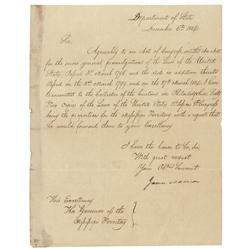 Department of State
December 6th 1804.
Sir,
Agreeably to an Act of Congress entitled An Act
for the more general promulgation of the Laws of the United
States passed 3d March 1795, and the acts in addition thereto
passed on the 2d March 1799 and on the 27th March 1804, I have
transmitted to the Collector of the Customs at Philadelphia
Copies of the Laws of the United States
being the proportion for the Mississippi Territory with a request that
he would forward them to your Excellency
I have the honor to be, Sir,
With great respect
Your Obt. Servant
James Madison
His Excellency
The Governor of the
Mississippi Territory